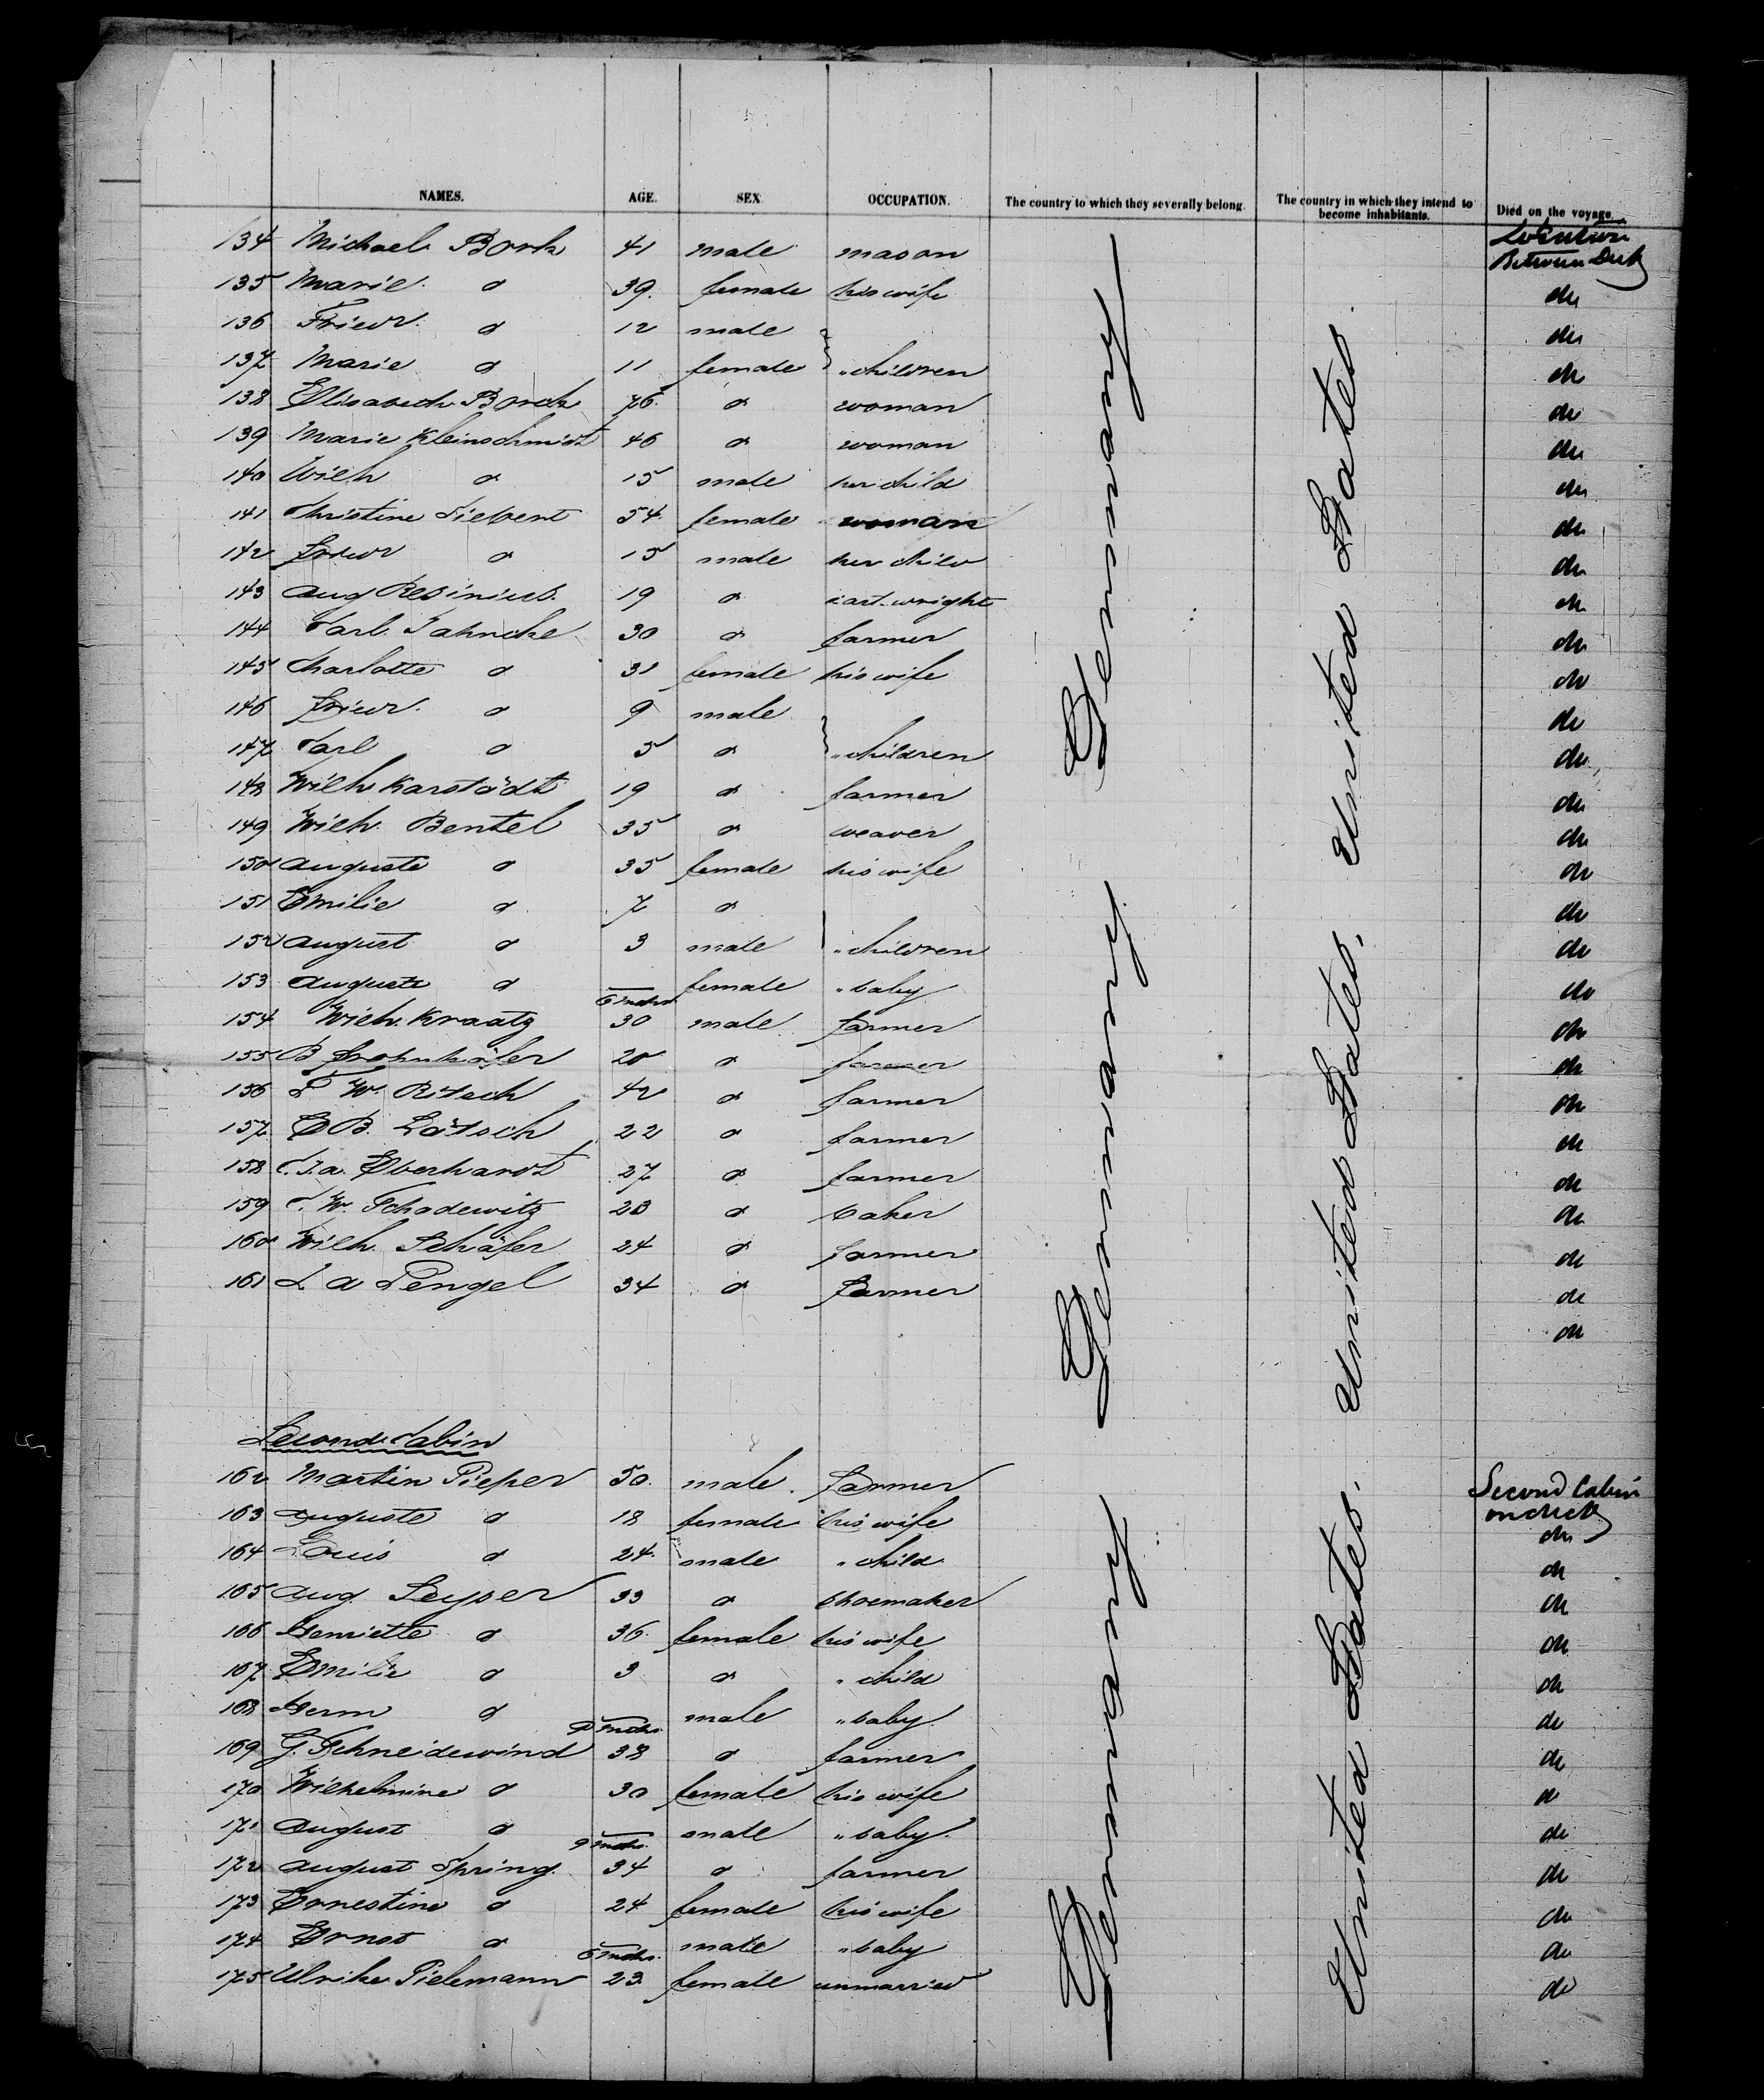 NAMES. AGE. SEX OCCUPATION. The country to which they severally belong. The country in which they intend to become inhabitants. Died on the voyage.
Location
134 Michael Bork 41 male mason Between Deck
135 Marie d 39. female his wife do
136 Friedr. d 12 male do
137 Marie d 11 female " children do
138 Elisabeth Borck 76. d woman do
139 Marie Kleinschmidt 46 d woman do
140 Wilh d 15 male her child do
141 Christine Siebert 54. female woman do
142 Friedr d 15 male her child do
143 Aug Resinius. 19 d cart-wright do
144 Carl Jahncke 30 d farmer do
145 Charlotte d 31 female his wife do
146 Friedr. d 9 male do
147 Carl d 5 d " children do
148 Wilh Karstädt 19 d farmer do
149 Wilh. Bentel 35 d weaver do
150 Auguste d 35 female his wife do
151 Emilie d 7 d do
152 August d 3 male " children do
153 Auguste d 6 mths. female " baby do
154 Wilh. Kraatz 30 male farmer do
155 B 20 d farmer do
156 F W. Ritsch 42 d farmer do
157 E B. Lätsch 22 d farmer do
158 C. F. A. Eberhardt 27 d farmer do
159 C. W. Schadewitz 23 d baker do
160 Wilh. Schäfer 24 d farmer do
161 L A Pengel 34 d Farmer do
do
Germany
Germany
Germany
United States.
United States,
United States.
Second Cabin
162 Martin Pieper 50. male. Farmer Second Cabin on deck
163 Auguste d 18 female his wife do
164 Louis d 24. male " child do
165 Aug. Leyser 33 d shoemaker do
166 Henriette d 36. female his wife do
167 Emilie d 3 d " child do
168 Herm d 9 mths. male " baby do
169 G. Schneidewind 38 d farmer do
170 Wilhelmine d 30 female his wife do
171 August d 9 mths. male " baby do
172 August Spring. 34 d farmer do
173 Ernestine d 24 female his wife do
174 Ernst d 6 mths. male " baby do
175 Ulrike Tielemann 23. female unmarried do